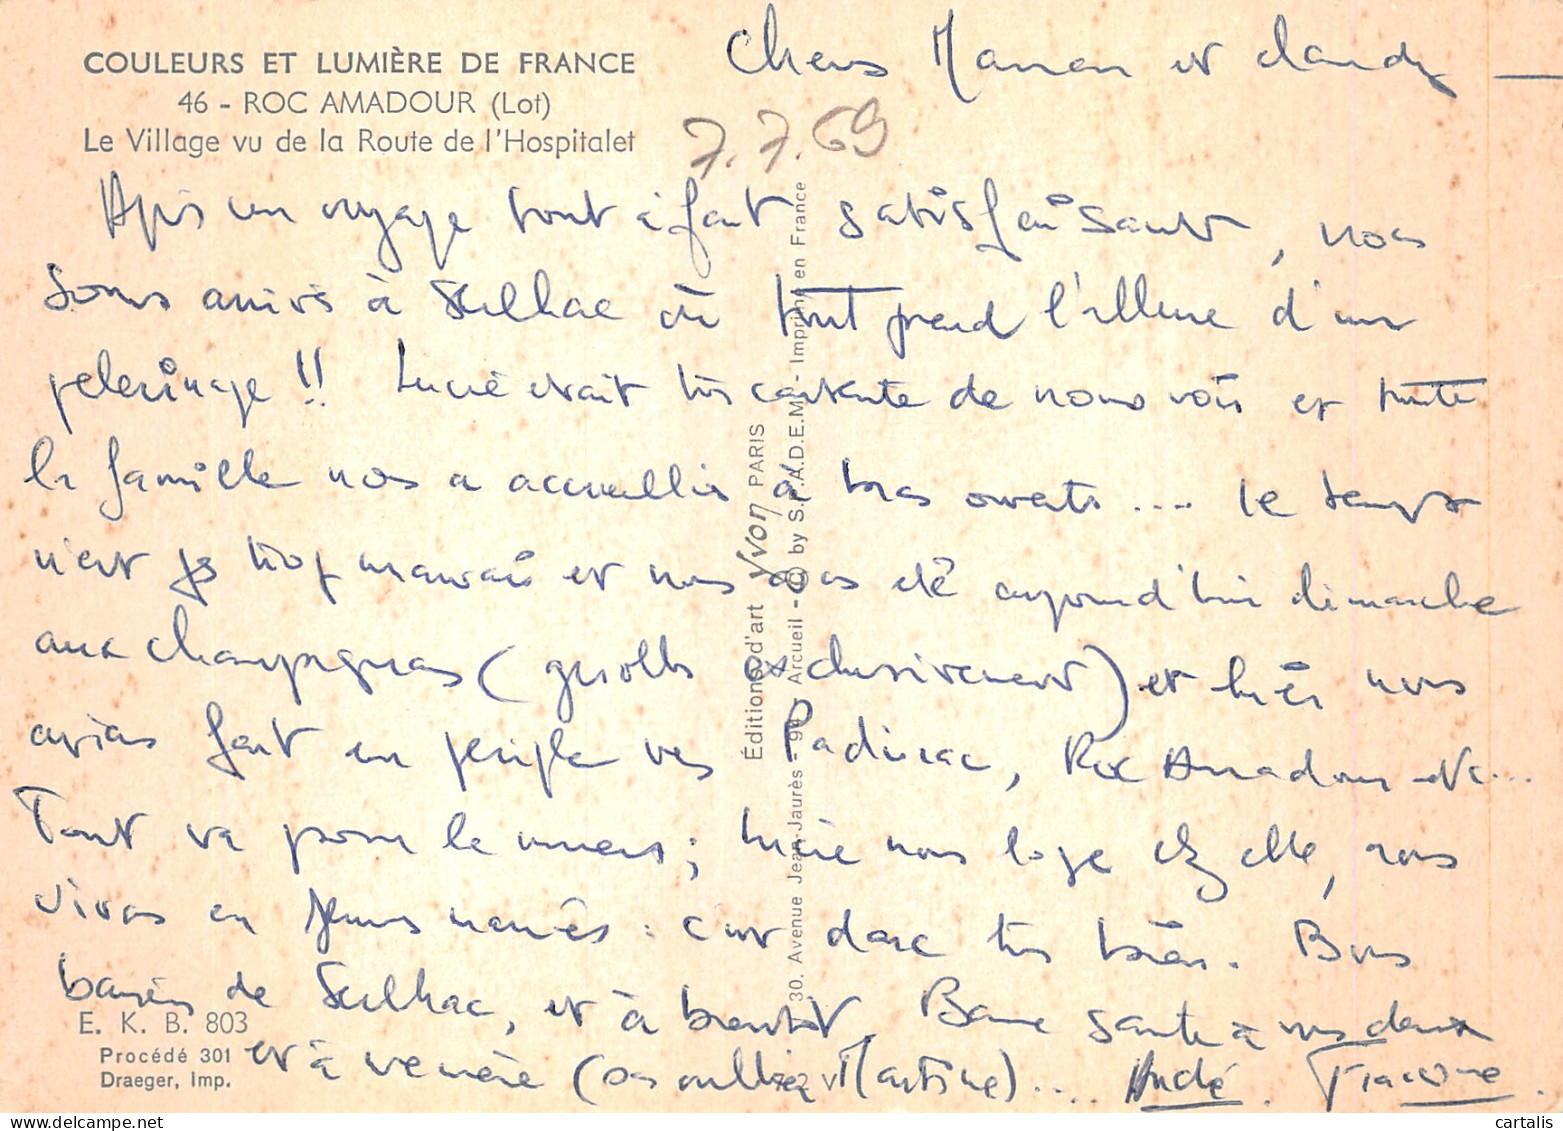 COULEURS ET LUMIÈRE DE FRANCE
46 - ROC AMADOUR (Lot)
Le Village vu de la Route de l'Hospitalet
Chers Manan et
7.7.69
Après un voyage tout à fait satisfaisant, nous
sommes arrivés à Seilhac où tout prend l'allure d'un
pelerinage !! Lucie était très contente de nous voir et toute
la famille nous a accueillis à bras ouverts .... le temps
n'est pas trop mauvais et nous avons été aujourd'hui dimanche
aux champignons (girolles exclusivement) et hier nous
avions fait un periple vers Padirac, Roc Amadour etc...
Tout va pour le mieux ; Lucie nous loge chez elle, nous
vivons en jeunes mariés : c'est donc très bien. Bons
baisers de Seilhac, et à bientôt. Bonne sante à vous deux
et à (sans oublier Martine) .... André . Francine .
Éditions d'art Yvon PARIS
30. Avenue Jean-Jaurès - 94 Arcueil - © by S.P.A.D.E.M. - Imprimé en France
E. K. B. 803
Procédé 301
Draeger, Imp.
cartalis